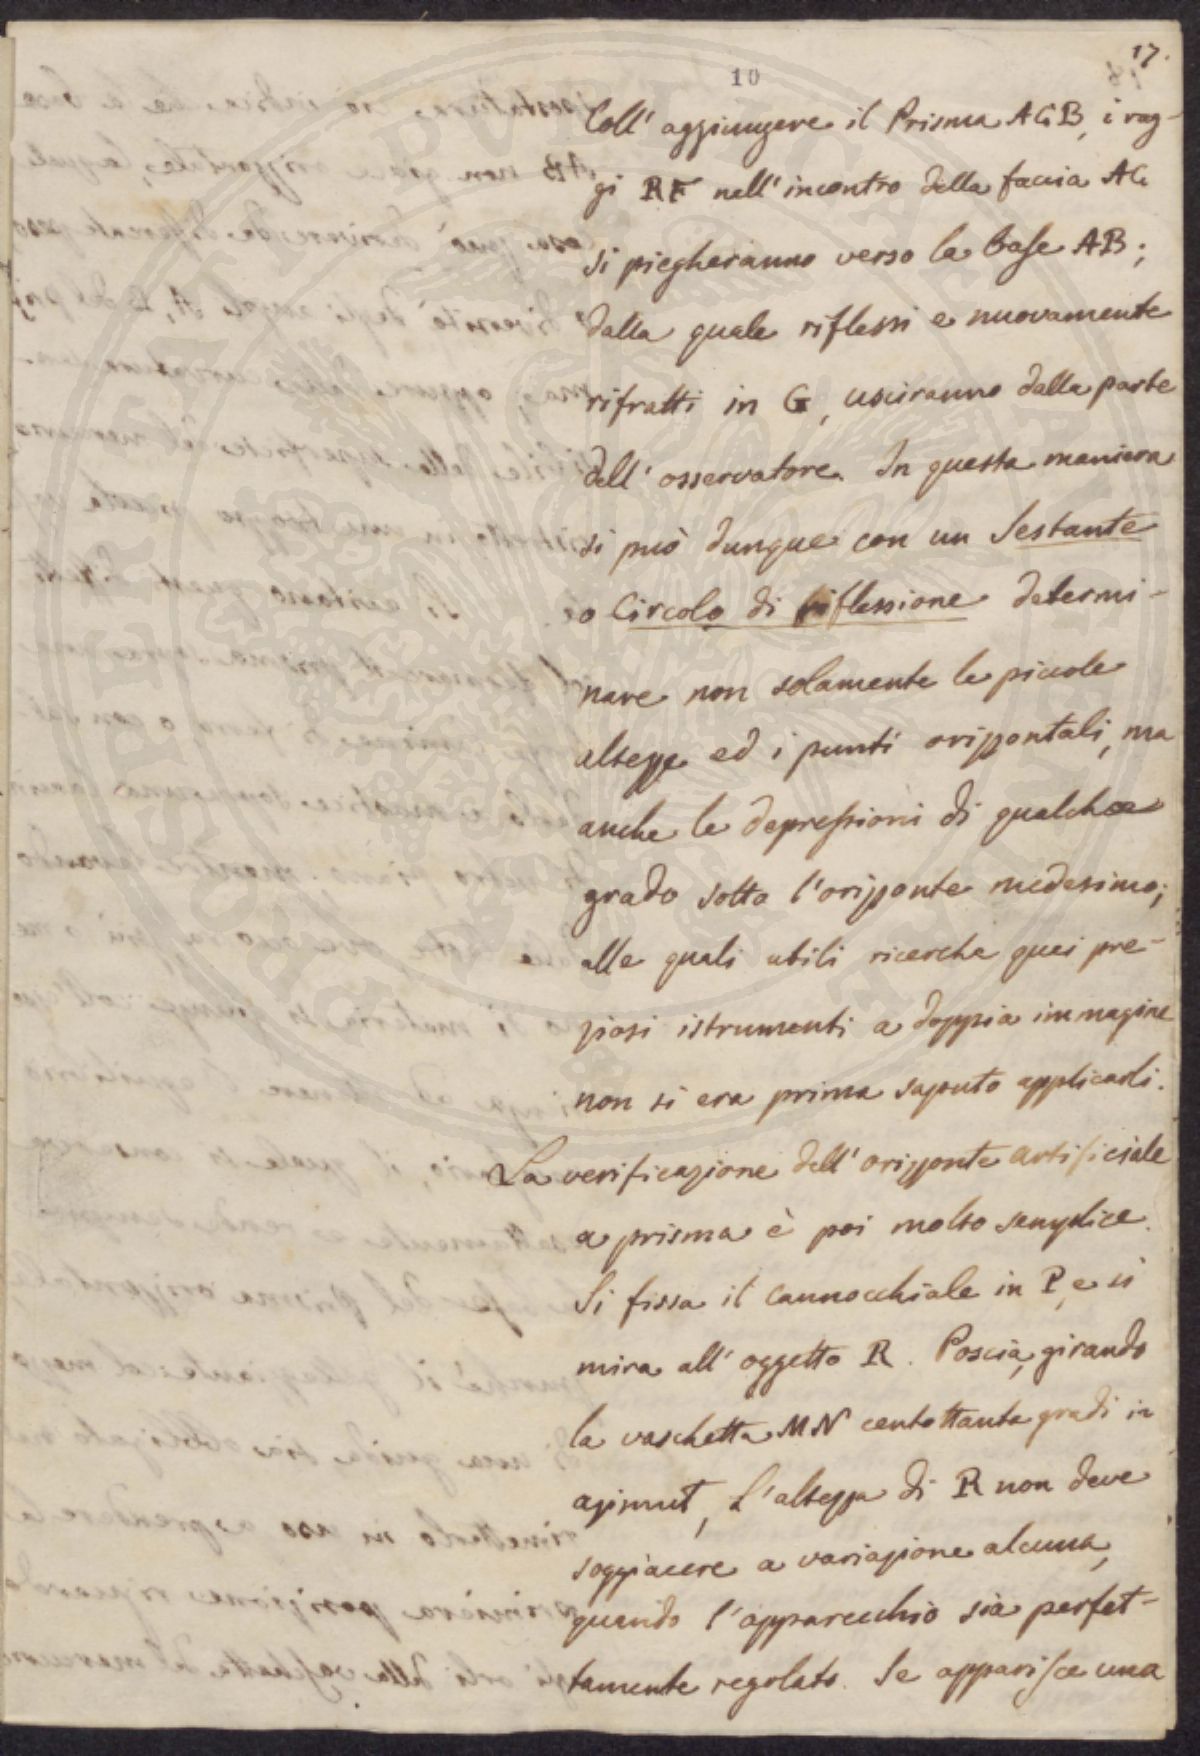 17.
10
Coll' aggiungere il Prisma ACB, i rag-
gi RF nell' incontro della faccia AC
si piegheranno verso la base AB;
dalla quale riflessi e nuovamente
rifratti in G, usciranno dalla parte
dell' osservatore. In questa maniera
si può dunque con un Sestante
o Circolo di riflessione determi-
nare non solamente le piccole
altezze ed i punti orizzontali, ma
anche le depressioni di qualche
grado sotto l'orizzonte medesimo;
alle quali utili ricerche quei pre-
ziosi istrumenti a doppia immagine
non si era prima saputo applicarli.
La verificazione dell' orizzonte artificiale
a prisma è poi molto semplice.
Si fissa il cannocchiale in P, e si
mira all' oggetto R. Poscia, girando
la vaschetta MN centottanta gradi in
azimut, l'altezza di R non deve
soggiacere a variazione alcuna,
quando l'apparecchio sia perfet-
tamente regolato. Se apparisce una